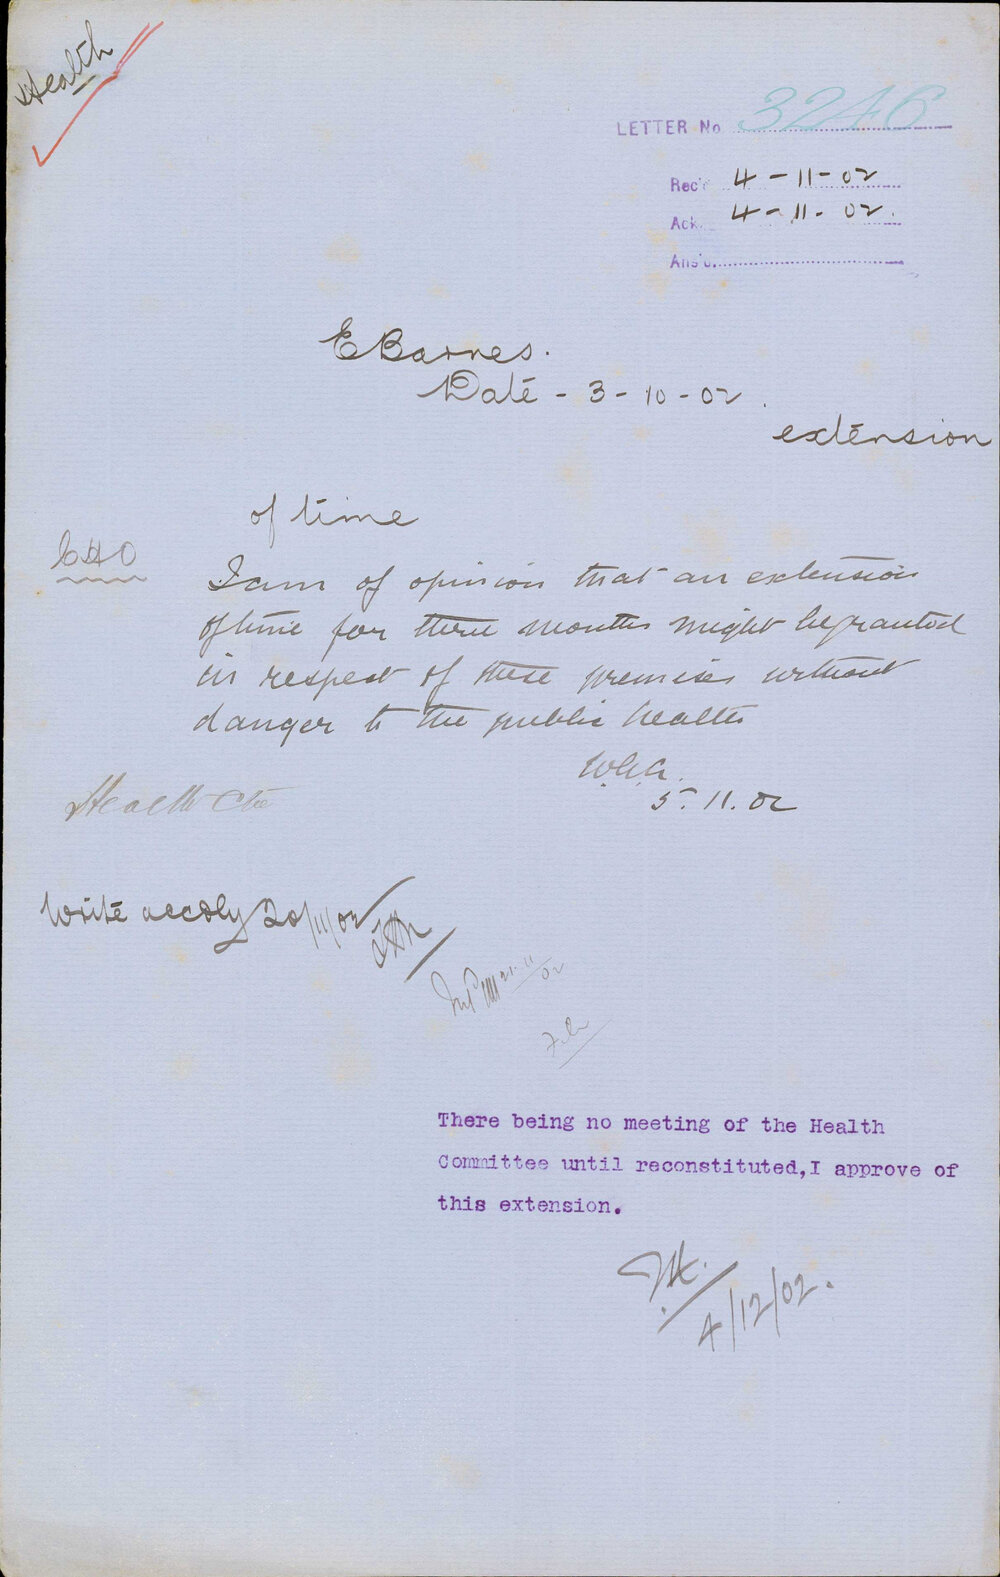 Health
LETTER No 3246
Rec'd 4-11-02
Ack. 4-11-02.
Ans'd.
E Barnes.
Date - 3-10-02.
extension
of time
CHO
I am of opinion that an extension
of time for three months might be granted
in respect of these premises without
danger to the public health
5.11.02
Health Cte
Write accdly 20/11/02
21.11
02
There being no meeting of the Health
Committee until reconstituted, I approve of
this extension.
4/12/02.